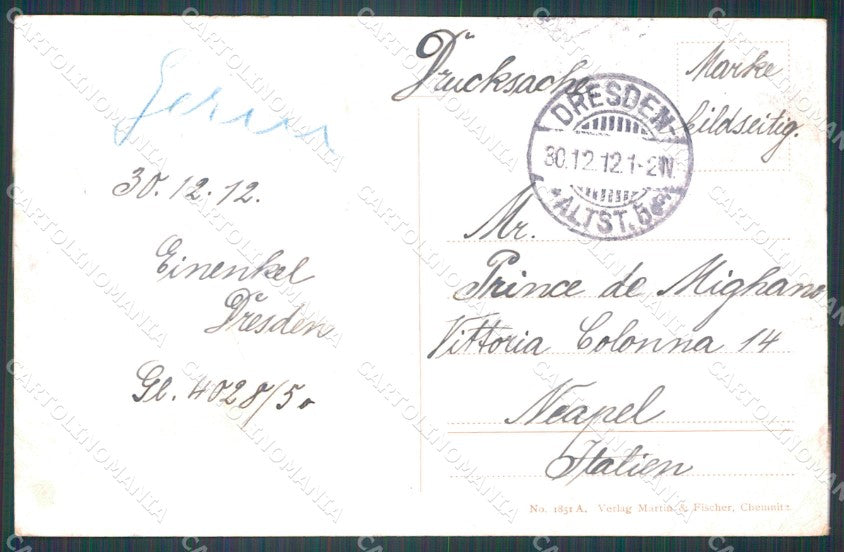 Drucksache
Marke
bildseitig.
DRESDEN
30.12.12.1-2N.
*ALTST.5
30.12.12.
Einenkel
Dresden
Gl. 4028/50
Mr.
Prince de Mighano
Vittoria Colonna 14
Neapel
Italien
No. 1851 A. Verlag Martin & Fischer, Chemnitz
CARTOLINOMANIA